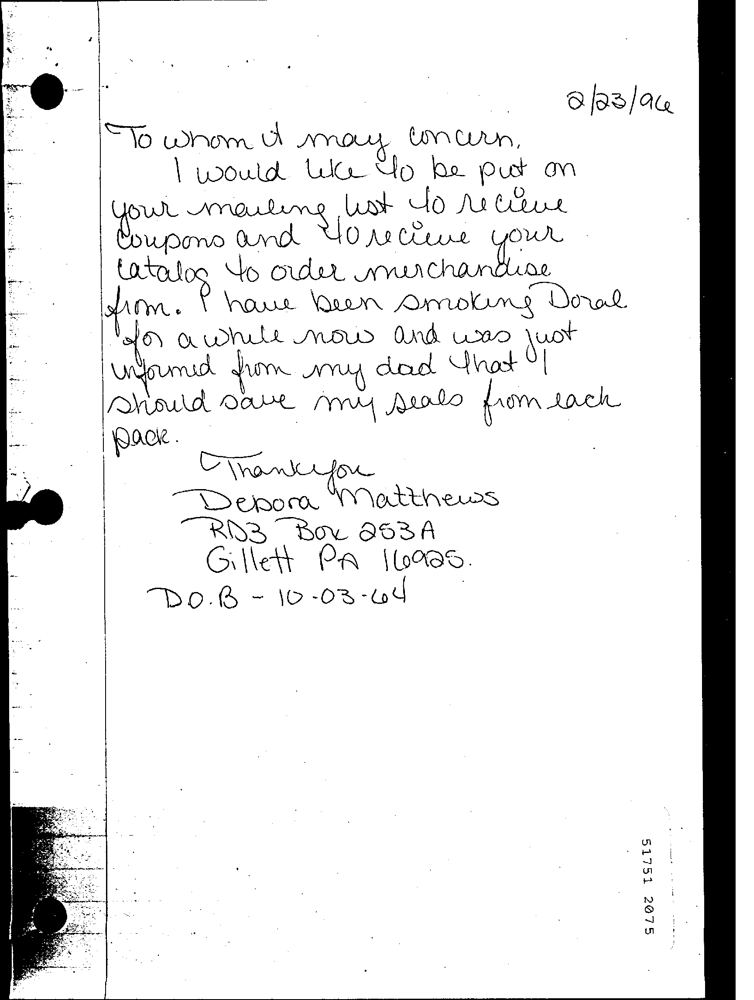 2/23/96
To whom it may concern,
I would like to be put on
your mailing list to recieve
coupons and to recieve your
catalog to order merchandise
from. I have been smoking Doral
for a while now and was just
informed from my dad that I
should save my seals from each
pack.
Thank you
Debora Matthews
RD3 Box 253A
Gillett PA 16925.
D.O.B - 10-03-64
51751 2075